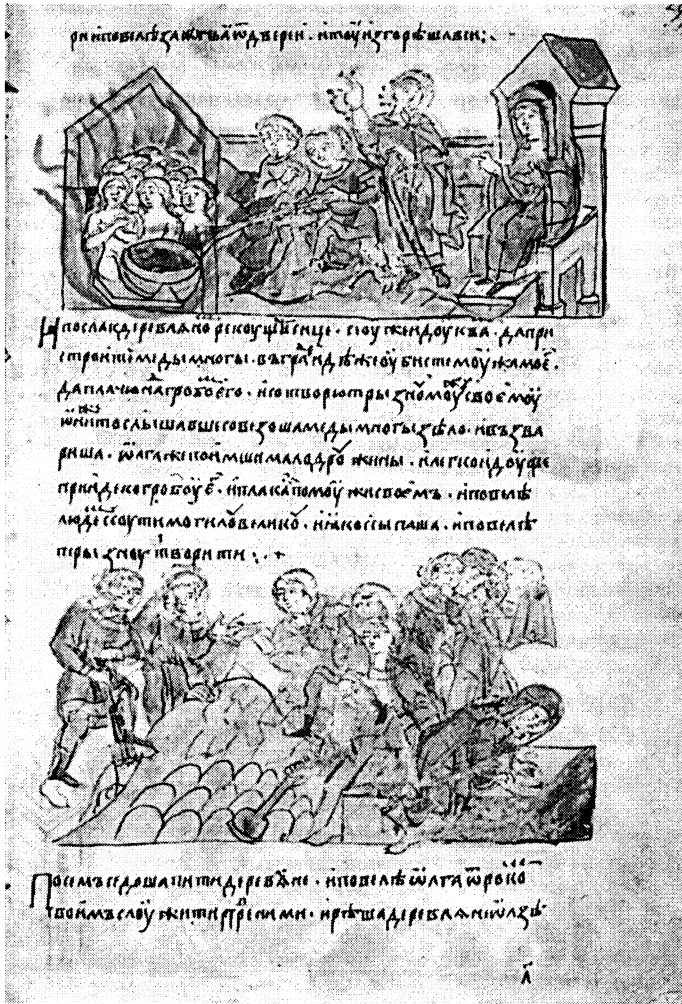 ри и повелѣ зажещи ѧ ѿ двереи . и тоу изгорѣша вси :.
И посла к деревлѧно рекоущи сице . се оуже идоу к ва . да при
строите меды многы . въ гра идѣже оубисте моужа моє .
да плачюсѧ на гробо его . и сотворю трызноу моу своємоу
ѡни же то слышавше совезоша меды многы ѕѣло . и възва
риша . ѡлга же поимши мало дрожины . и легко идоуще
приде к гробоу є . и плака по моужи своемъ . и повелѣ
люде ссоути могило велико . и ꙗко ссыпаша . и повелѣ
трызноу творити :. +
По семъ седоша пити деревлѧне . и повелѣ ѡлга ѿроко
своимъ слоужити пре ними . и рѣша деревлѧни ѡлзѣ